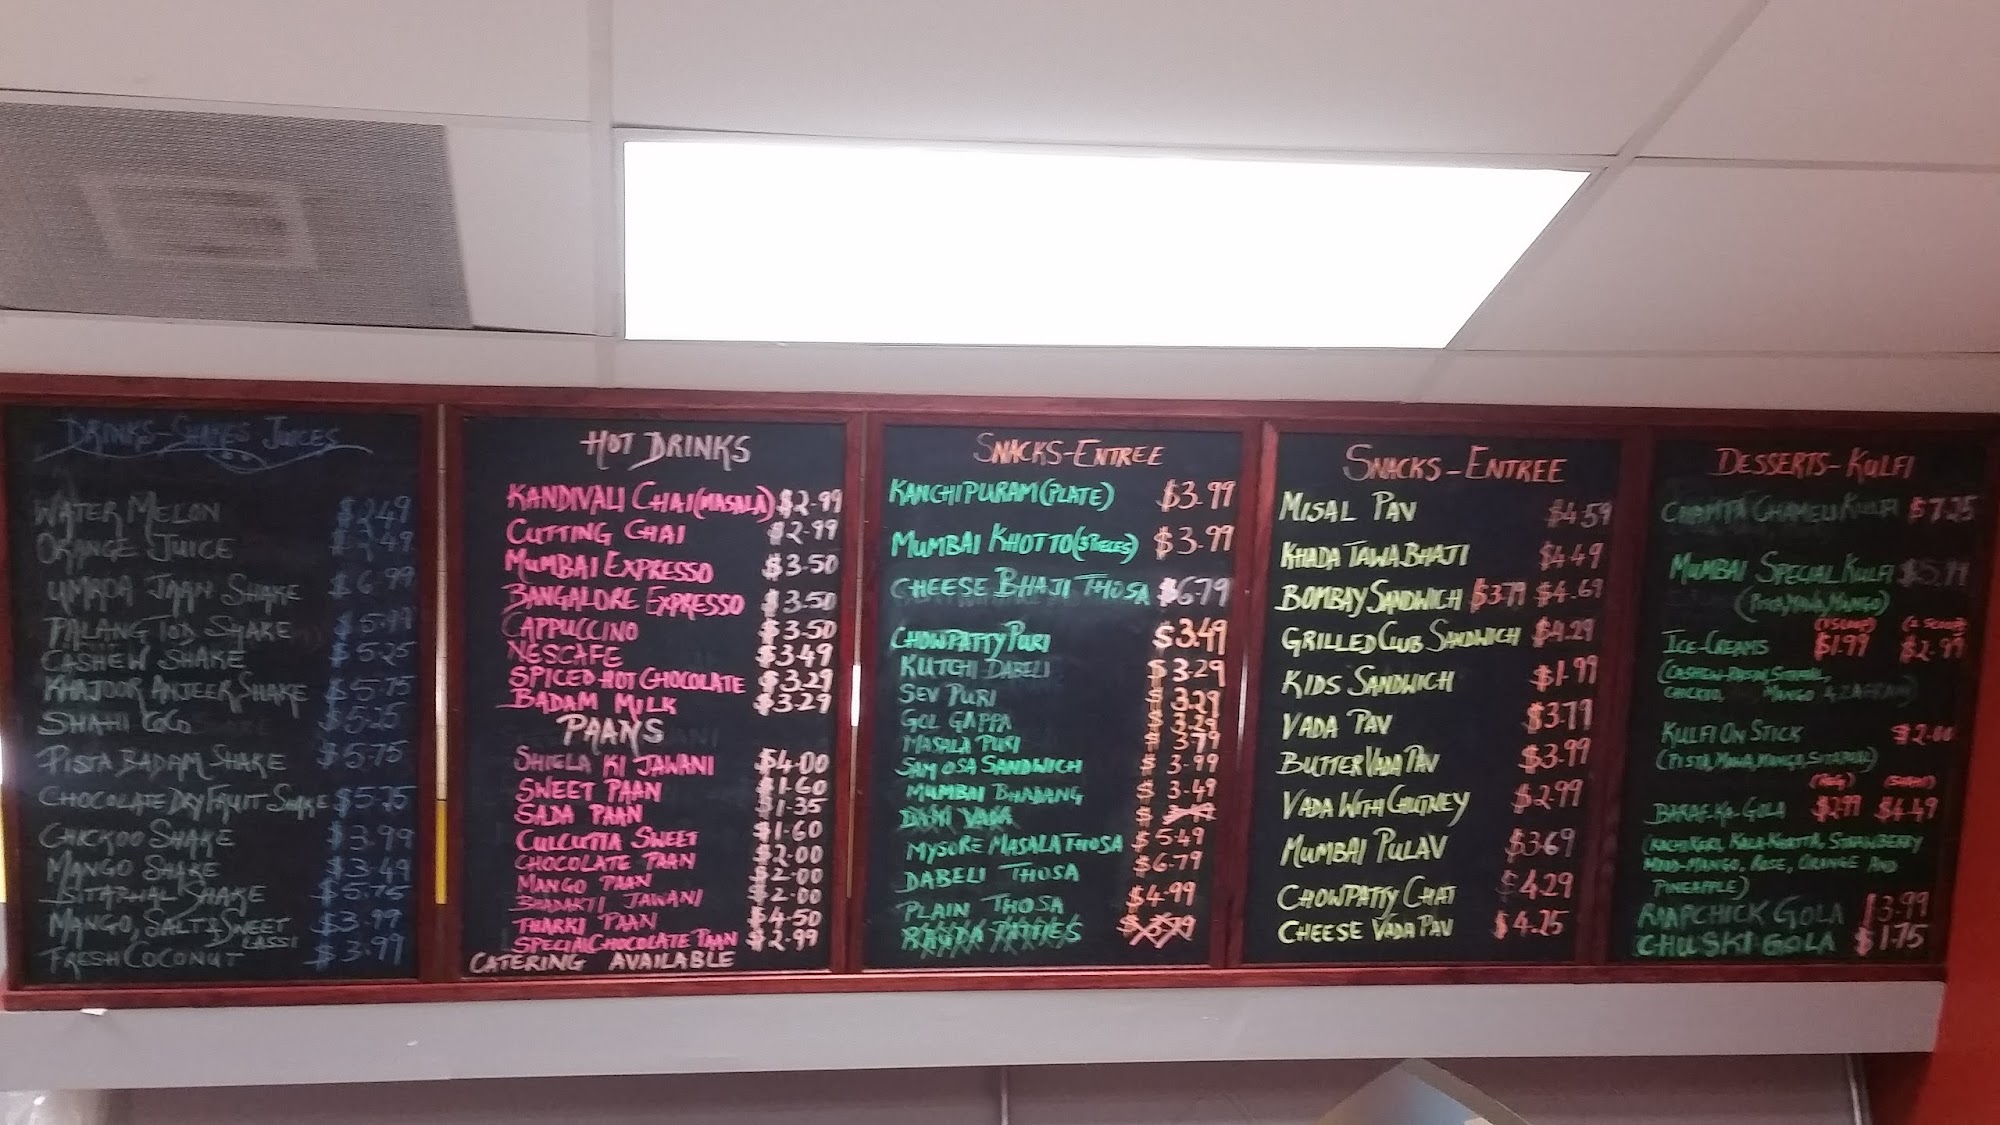 DRINKS-SHAKES JUICES
WATER MELON $2.49
ORANGE JUICE $2.49
UMADA JAAN SHAKE $6.99
PALANG TOD SHAKE $5.99
CASHEW SHAKE $5.25
KHAJOOR ANJEER SHAKE $5.75
SHAHI COCO $5.25
PISTA BADAM SHAKE $5.75
CHOCOLATE DRY FRUIT SHAKE $5.75
CHICKOO SHAKE $3.99
MANGO SHAKE $3.49
SITAPHAL SHAKE $5.75
MANGO, SALT & SWEET $3.99
LASSI
FRESH COCONUT $3.99
HOT DRINKS
KANDIVALI CHAI (MASALA) $2.99
CUTTING CHAI $2.99
MUMBAI EXPRESSO $3.50
BANGALORE EXPRESSO $3.50
CAPPUCCINO $3.50
NESCAFE $3.49
SPICED HOT CHOCOLATE $3.29
BADAM MILK $3.29
PAANS
SHIELA KI JAWANI $4.00
SWEET PAAN $1.60
SADA PAAN $1.35
CULCUTTA SWEET $1.60
CHOCOLATE PAAN $2.00
MANGO PAAN $2.00
BHADAKTI JAWANI $2.00
THARKI PAAN $4.50
SPECIAL CHOCOLATE PAAN $2.99
CATERING AVAILABLE
SNACKS-ENTREE
KANCHIPURAM (PLATE) $3.99
MUMBAI KHOTTO (3 PIECES) $3.99
CHEESE BHAJI THOSA $6.79
CHOWPATTY PURI $3.49
KUTCHI DABELI $3.29
SEV PURI $3.29
GOL GAPPA $3.29
MASALA PURI $3.79
SAMOSA SANDWICH $3.99
MUMBAI BHADANG $3.49
DAHI VADA $
MYSORE MASALA THOSA $5.49
DABELI THOSA $6.79
PLAIN THOSA $4.99
RAGDA PATTIES $3.79
SNACKS-ENTREE
MISAL PAV $4.59
KHADA TAWA BHAJI $4.49
BOMBAY SANDWICH $3.79 $4.69
GRILLED CLUB SANDWICH $4.29
KIDS SANDWICH $1.99
VADA PAV $3.79
BUTTER VADA PAV $3.99
VADA WITH CHUTNEY $2.99
MUMBAI PULAV $3.69
CHOWPATTY CHAT $4.29
CHEESE VADA PAV $4.25
DESSERTS-KULFI
CHAMPA CHAMELI KULFI $7.25
MUMBAI SPECIAL KULFI $5.99
(PISTA, MAWA, MANGO)
(1 SCOOP) (2 SCOOP)
ICE-CREAMS $1.99 $2.99
(CASHEW-RAISIN, SITAPHAL,
CHICKOO, MANGO & ZAFRAN)
KULFI ON STICK $2.00
(PISTA, MAWA, MANGO, SITAPHAL)
BARAF KA GOLA $2.99 $4.49
(KACHI KERI, KALA-KHATTA, STRAWBERRY
MOOD-MANGO, ROSE, ORANGE AND
PINEAPPLE)
RAAPCHICK GOLA $3.99
CHUSKI GOLA $1.75